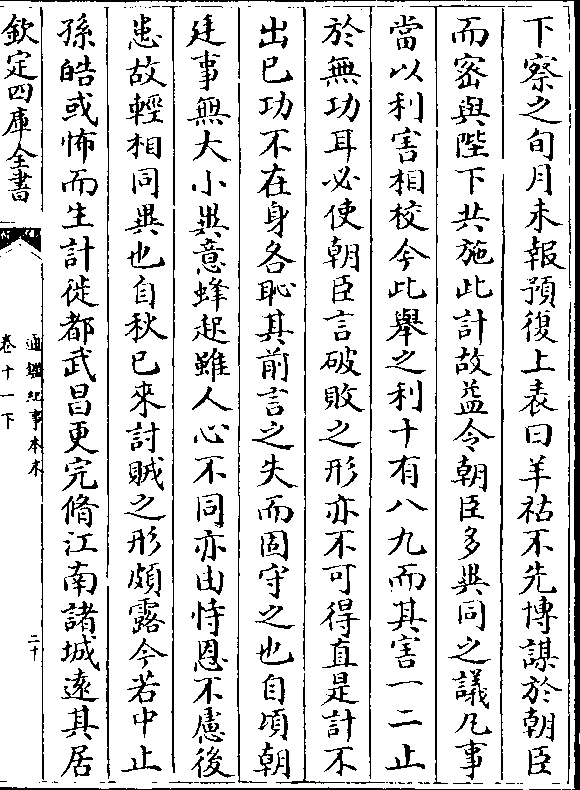 下察之旬月未報預復上表曰羊祜不先博謀於朝臣
而宻與陛下共施此計故益令朝臣多異同之議凡事
當以利害相校今此舉之利十有八九而其害一二止
於無功耳必使朝臣言破敗之形亦不可得直是計不
出已功不在身各恥其前言之失而固守之也自頃朝
廷事無大小異意蜂起雖人心不同亦由恃恩不慮後
患故輕相同異也自秋已來討賊之形頗露今若中止
孫皓或怖而生計徙都武昌更完脩江南諸城逺其居
欽定四庫全書
通鑑紀事本末
卷十一下
二十